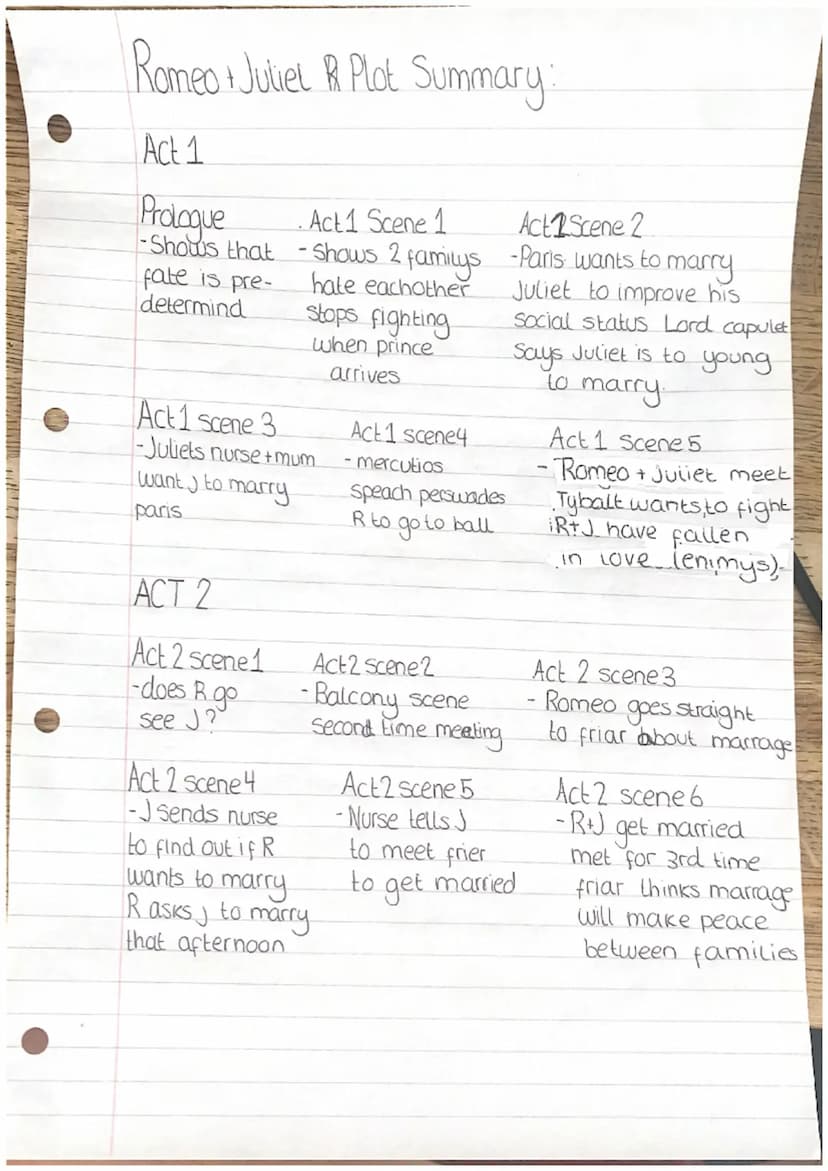 Romeo + Juliet Plot Summary:
Act 1
Prologue
- Shows that
fate is pre-
determind
. Act 1 Scene 1
- Shows 2 familys
hate eachother
stops fighting
when prince
arrives
Act 1 Scene 2
- Paris wants to marry
Juliet to improve his
social status Lord capulet
says Juliet is to young
to marry.
Act 1 scene 3
- Juliets nurse + mum
want J to marry
paris
Act 1 scene 4
- mercutios
speach persuades
R to go to ball
Act 1 Scene 5
- Romeo + Juliet meet
Tybalt wants to fight
R+J have fallen
in love (enimys)
ACT 2
Act 2 scene 1
- does R go
see J?
Act 2 scene 2
- Balcony scene
second time meeting
Act 2 scene 3
- Romeo goes straight
to friar about marrage
Act 2 scene 4
- J sends nurse
to find out if R
wants to marry
R asks J to marry
that afternoon
Act 2 scene 5
- Nurse tells J
to meet frier
to get married
Act 2 scene 6
- R+J get married
met for 3rd time
friar thinks marrage
will make peace
between families